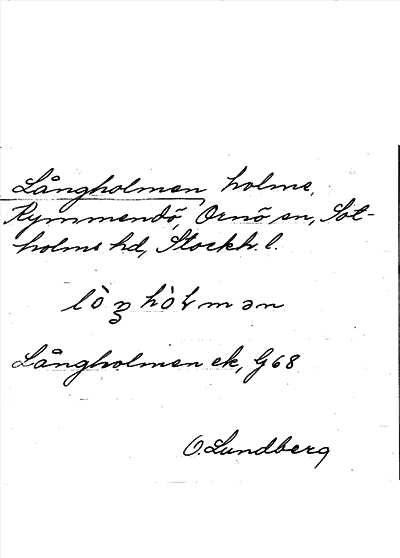 Långholmen holme,
Kymmendö, Ornö sn, Sot-
holms hd, Stockh. l.
lòŋhòɫmən
Långholmen ek, G68
O. Lundberg